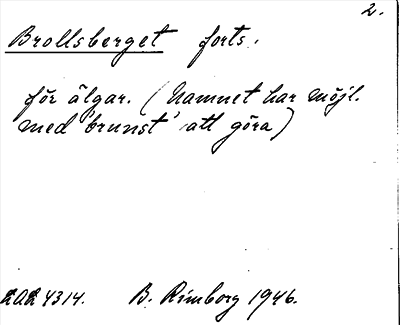 2.
Brollsberget forts.
för älgar. (Namnet har möjl.
med 'brunst' att göra)
B. Rimborg 1946.